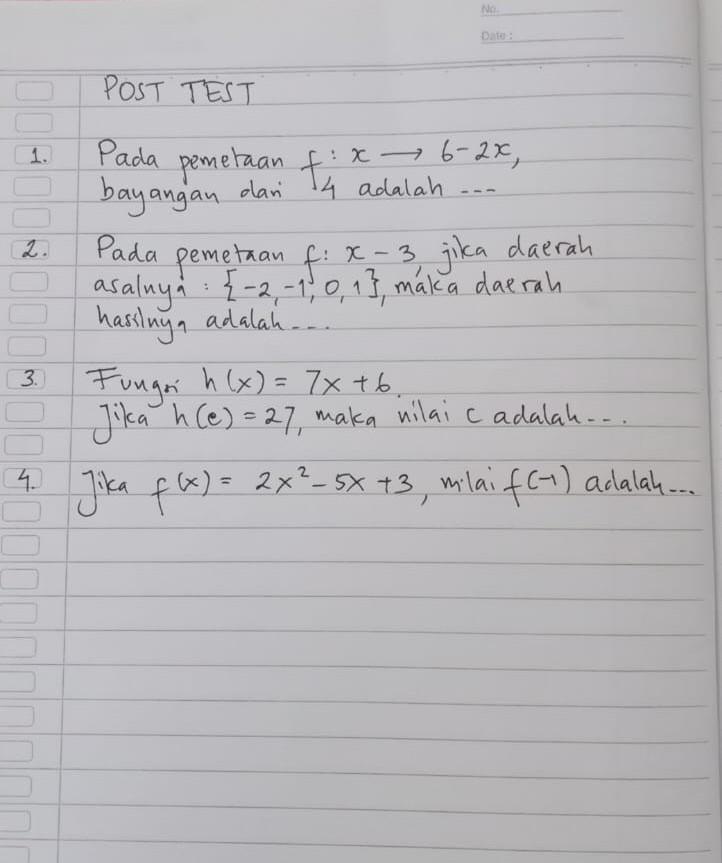 No.
Date :
POST TEST
1. Pada pemetaan f : x → 6-2x,
bayangan dari 4 adalah ---
2. Pada pemetaan f: x - 3, jika daerah
asalnya : {-2, -1, 0, 1}, maka daerah
hasilnya adalah ---.
3. Fungsi h(x) = 7x + 6.
Jika h(c) = 27, maka nilai c adalah ---.
4. Jika f(x) = 2x² - 5x + 3, nilai f(-1) adalah ---